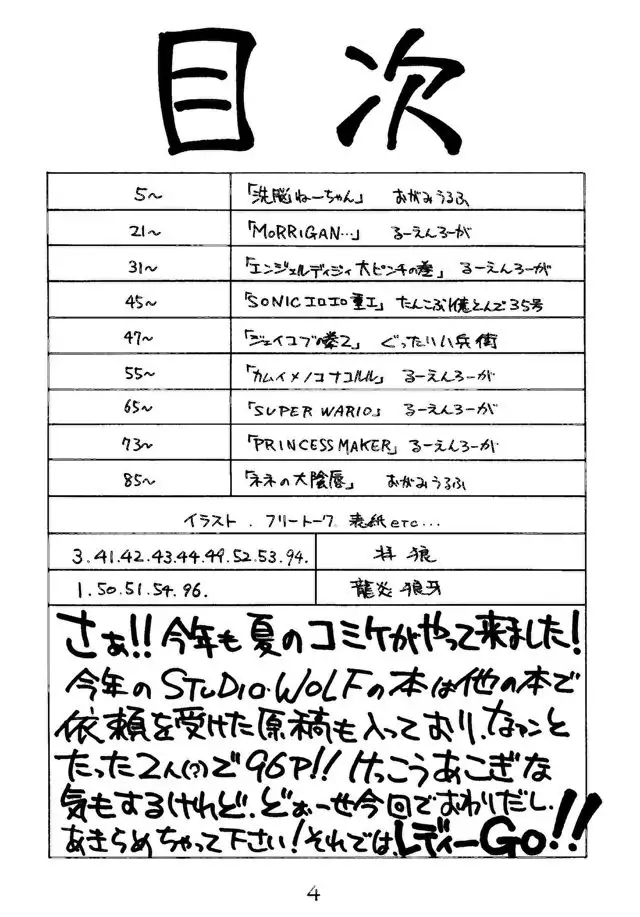 目次
5～ 「洗脳ねーちゃん」 おがみうるふ
21～ 「MORRIGAN…」 るーえんろーが
31～ 「エンジェルディジィ大ピンチの巻」 るーえんろーが
45～ 「SONICエロエロ重工」 たんこぶ1億とんで35号
47～ 「ジェイコブの拳2」 ぐったり八兵衛
55～ 「カムイメノコナコルル」 るーえんろーが
65～ 「SUPER WARIO」 るーえんろーが
73～ 「PRINCESS MAKER」 るーえんろーが
85～ 「ネネの大陰唇」 おがみうるふ
イラスト．フリートーク 表紙etc…
3.41.42.43.44.49.52.53.94. 拝 狼
1.50.51.54.96. 龍炎 狼牙
さぁ!!今年も夏のコミケがやって来ました!
今年のSTUDIO・WOLFの本は他の本で
依頼を受けた原稿も入っており、なァんと
たった2人(?)で96P!! けっこうあこぎな
気もするけれど、どぉーせ今回でおわりだし、
あきらめちゃって下さい!それでは、レディーGo!!
4